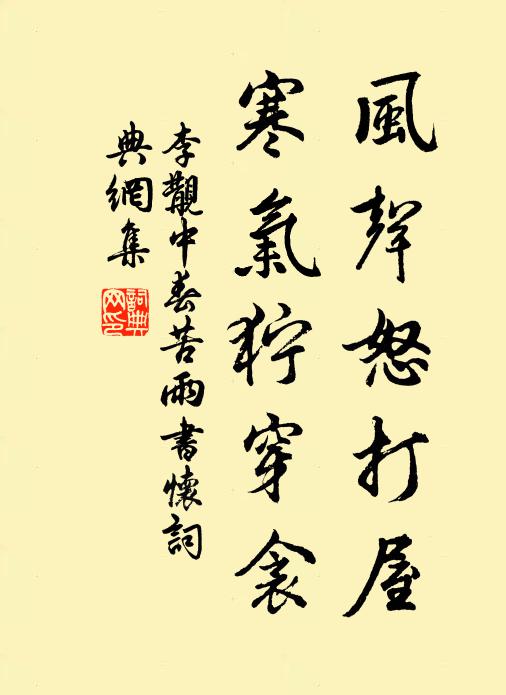 風聲怒打屋
寒氣狞穿衾
李覯中春苦雨書懷詞
典網集
詞典
网印